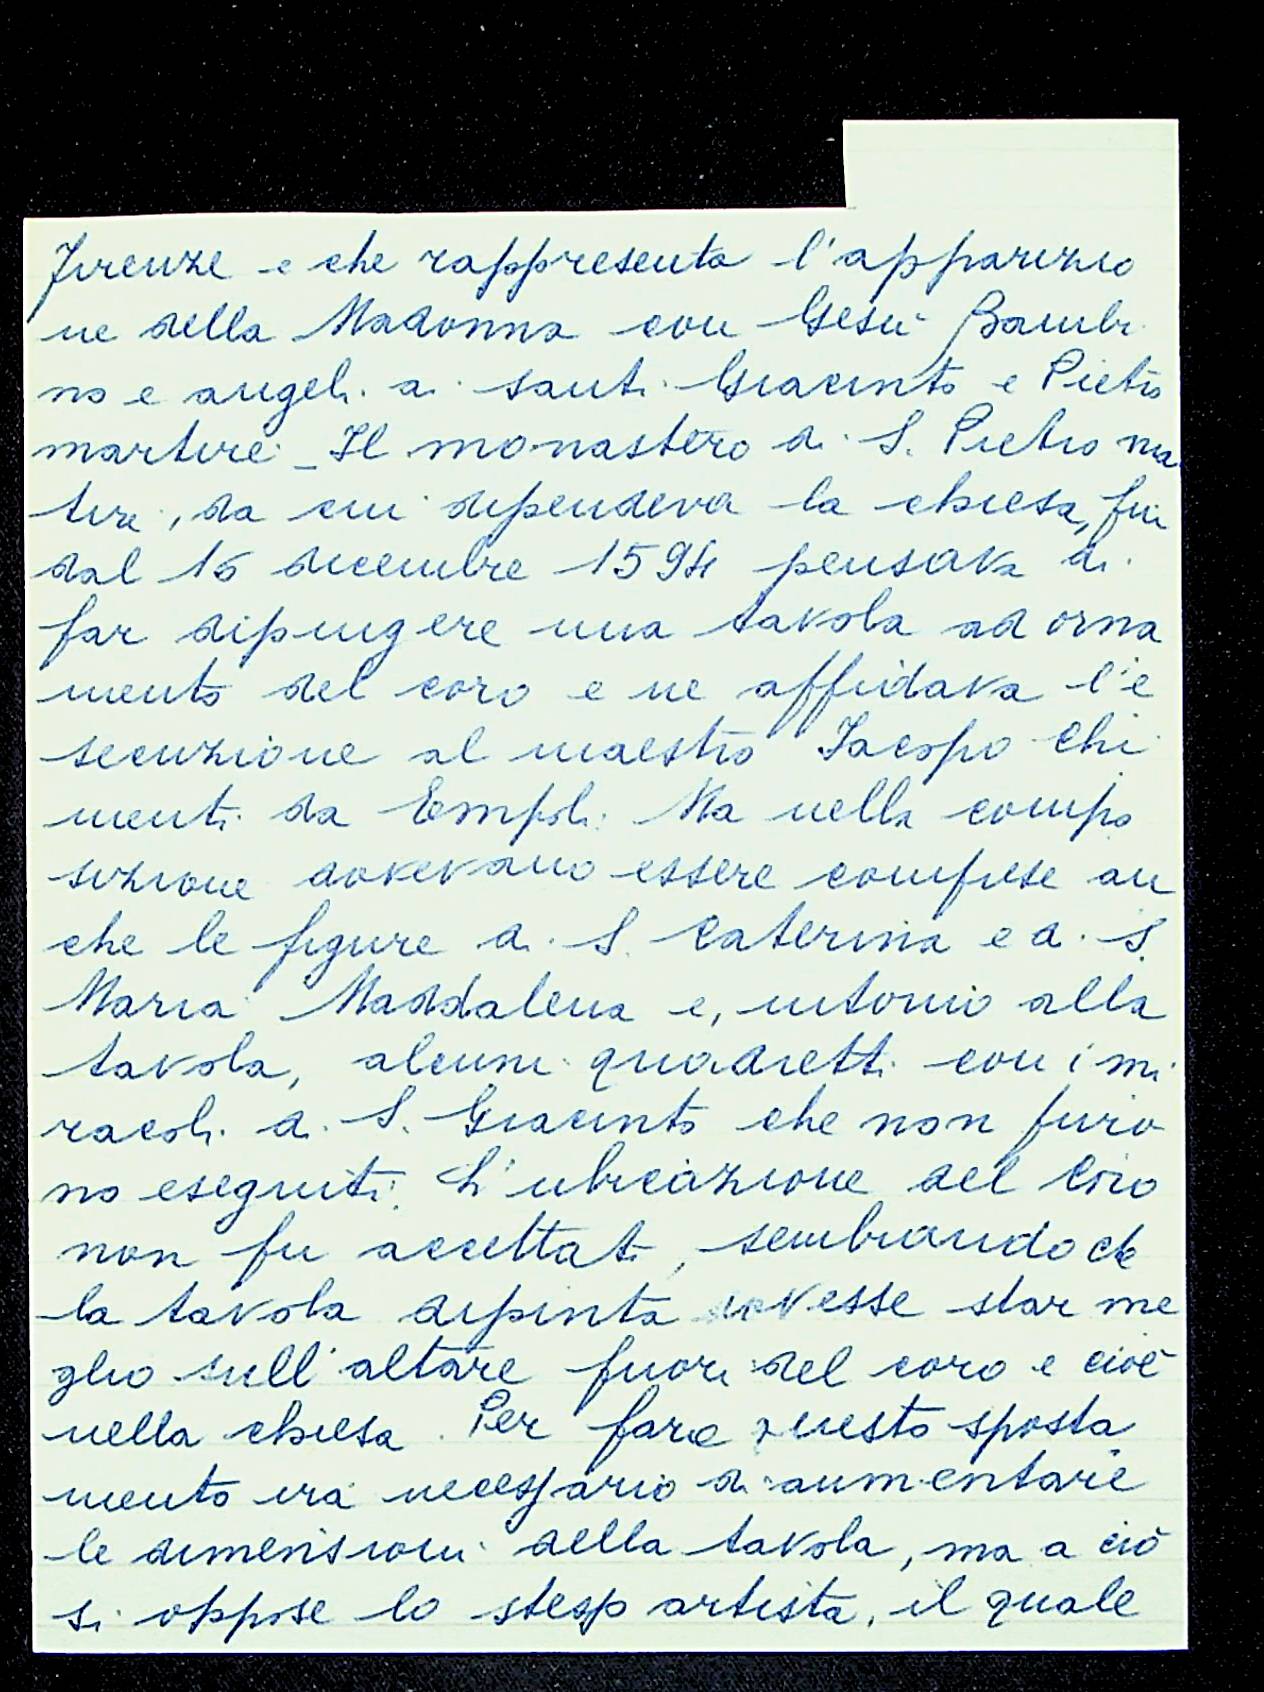 Firenze e che rappresenta l'apparizio
ne della Madonna con Gesù Bambi
no e angeli ai santi Giacinto e Pietro
martire. Il monastero di S. Pietro ma
tire, da cui dipendeva la chiesa, fin
dal 16 dicembre 1594 pensava di
far dipingere una tavola ad orna
mento del coro e ne affidava l'e
secuzione al maestro Jacopo Chi
menti da Empoli. Ma nella compo
sizione dovevano essere comprese an
che le figure di S. Caterina e di S.
Maria Maddalena e, intorno alla
tavola, alcuni quadretti con i mi
racoli di S. Giacinto che non furo
no eseguiti. L'ubicazione del Coro
non fu accettata, sembrando che
la tavola dipinta dovesse star me
glio sull'altare fuori del coro e cioè
nella chiesa. Per fare questo sposta
mento era necessario di aumentare
le dimensioni della tavola, ma a ciò
si oppose lo stesso artista, il quale